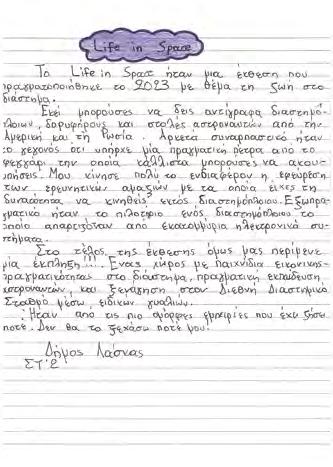 Life in Space
Το Life in Space ήταν μια έκθεση που
πραγματοποιήθηκε το 2023 με θέμα τη ζωή στο
διάστημα.
Εκεί μπορούσες να δεις αντίγραφα διαστημό-
πλοιων, δορυφόρους και στολές αστροναυτών από την
Αμερική και τη Ρωσία. Αρκετά συναρπαστικό ήταν
το γεγονός ότι υπήρχε μία πραγματική πέτρα από το
φεγγάρι την οποία κάλλιστα μπορούσες να ακου-
μπήσεις! Μου κίνησε πολύ το ενδιαφέρον η εφεύρεση
των ερευνητικών αμαξιών με τα οποία είχες τη
δυνατότητα να κινηθείς εκτός διαστημόπλοιου. Εξωπρα-
γματικό ήταν το πιλοτήριο ενός διαστημόπλοιου το
οποίο απαρτιζόταν από εκατομμύρια ηλεκτρονικά συ-
στήματα.
Στο τέλος της έκθεσης όμως μας περίμενε
μία έκπληξη!!! Ένας χώρος με παιχνίδια εικονικής
πραγματικότητας στο διάστημα, πραγματική εκπαίδευση
αστροναυτών, και ξενάγηση στον Διεθνή Διαστημικό
Σταθμό μέσω ειδικών γυαλιών.
Ήταν από τις πιο όμορφες εμπειρίες που έχω ζήσει
ποτέ. Δεν θα το ξεχάσω ποτέ μου!
Δήμος Λάσκας
ΣΤ'2